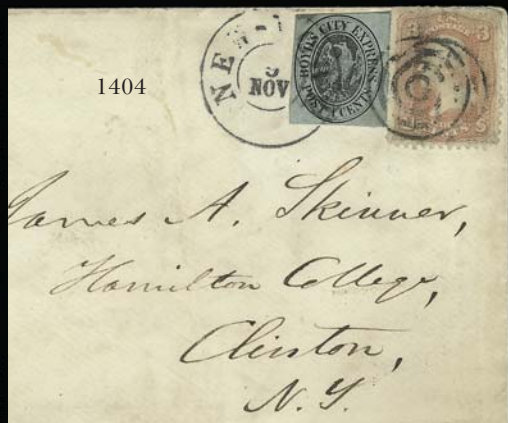 1404
NEW-
5
NOV
BOYD'S CITY EXPRESS
POST CENTS
3
James A. Skinner,
Hamilton College,
Clinton,
N.Y.